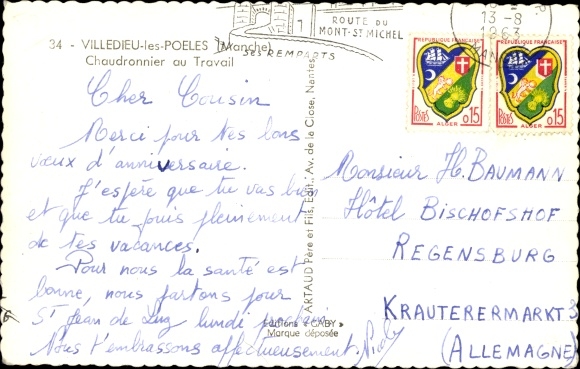 34 - VILLEDIEU-les-POELES (Manche)
Chaudronnier au Travail
1
ROUTE DU
MONT-ST MICHEL
SES REMPARTS
13-8
1963
REPUBLIQUE FRANÇAISE
POSTES 0,15
ALGER
REPUBLIQUE FRANÇAISE
POSTES 0,15
ALGER
Cher Cousin
Merci pour tes bons
vœux d'anniversaire.
J'espère que tu vas bien
et que tu jouis pleinement
de tes vacances.
Pour nous la santé est
bonne, nous partons pour
St Jean de Luz lundi prochain
Nous t'embrassons affectueusement.
Nicole
ARTAUD Père et Fils, Edit., Av. de la Close, Nantes
Editions « GABY »
Marque déposée
Monsieur H. BAUMANN
Hôtel BISCHOFSHOF
REGENSBURG
KRAUTERERMARKT 3
(ALLEMAGNE)